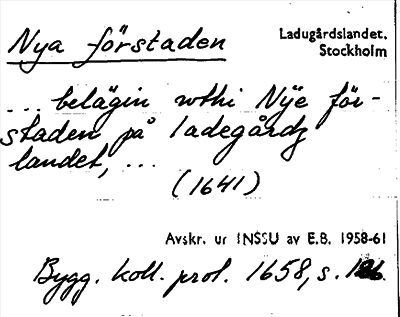 Nya förstaden
Ladugårdslandet,
Stockholm
... belägin wthi Nÿe för-
staden på ladegårdz
landet, ...
(1641)
Avskr. ur INSSU av E.B. 1958-61
Bygg. koll. prot. 1658, s.